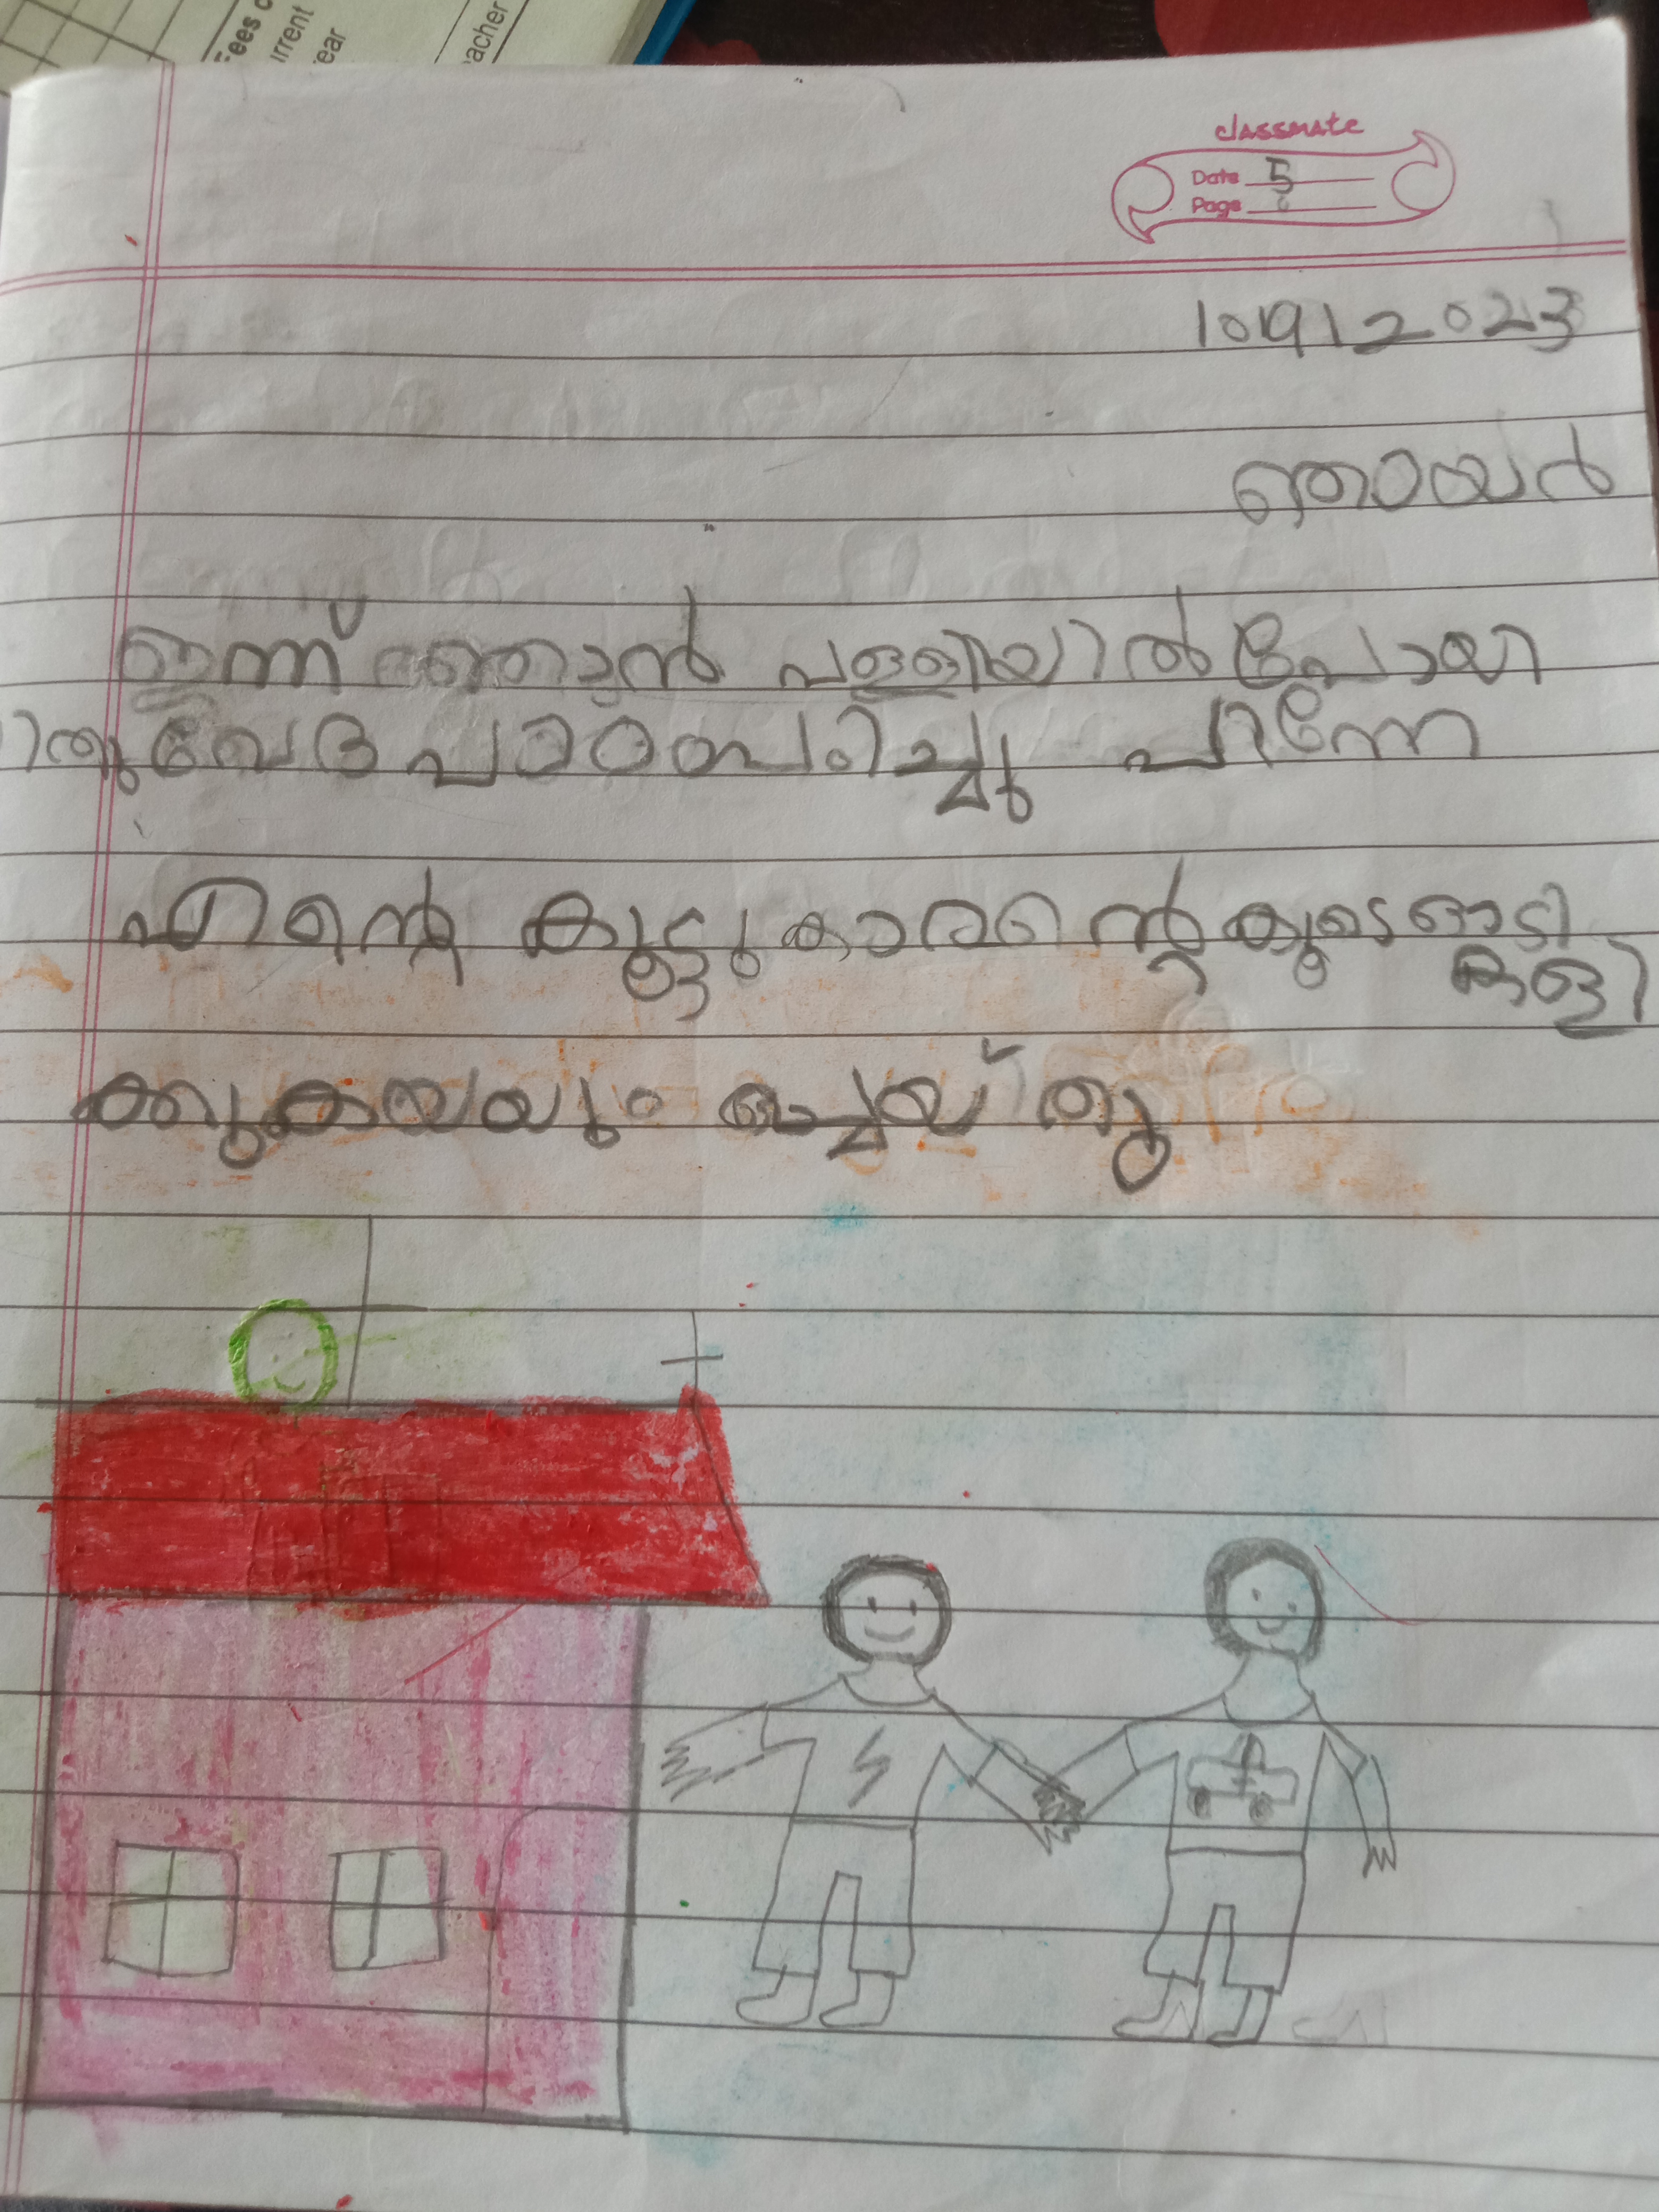 Fees
urrent
ear
acher
classmate
Date 5
Page
10/9/2023
ഞായർ
ഇന്ന് ഞാൻ പള്ളിയിൽ പോയി
വേദ പാഠം പഠിച്ചു പിന്നേ
എൻ്റെ കൂട്ടുകാരൻ്റെ കൂടെ ഓടി
കളി
ക്കുകയയും ചെയ്തു